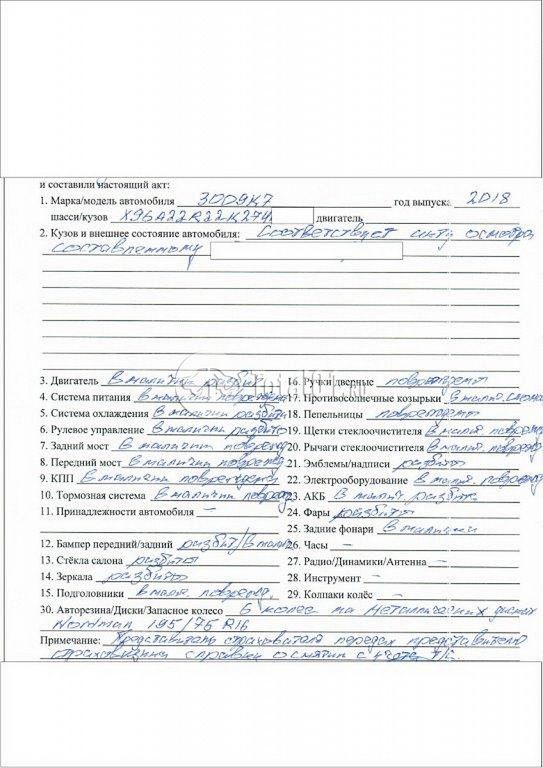 и составили настоящий акт:
1. Марка/модель автомобиля 3009К7 год выпуска: 2018
шасси/кузов X96A22R22K274 двигатель
2. Кузов и внешнее состояние автомобиля: Соответствует акту осмотра,
составленному
3. Двигатель В наличии разбит 16. Ручки дверные повреждены
4. Система питания В наличии повреждена 17. Противосолнечные козырьки В налич.
5. Система охлаждения В наличии разбита 18. Пепельницы повреждены
6. Рулевое управление В наличии разбито 19. Щетки стеклоочистителя В налич. поврежд
7. Задний мост В наличии поврежд 20. Рычаги стеклоочистителя В налич. поврежд
8. Передний мост В наличии поврежд 21. Эмблемы/надписи разбиты
9. КПП В наличии повреждена 22. Электрооборудование В налич. поврежд
10. Тормозная система В наличии поврежд 23. АКБ В налич. разбит
11. Принадлежности автомобиля – 24. Фары разбиты
25. Задние фонари В наличии
12. Бампер передний/задний разбит/В налич 26. Часы –
13. Стёкла салона разбиты 27. Радио/Динамики/Антенна –
14. Зеркала разбиты 28. Инструмент –
15. Подголовники В налич. поврежд. 29. Колпаки колёс –
30. Авторезина/Диски/Запасное колесо 6 колес на металлических дисках
Nordman 195/75 R16
Примечание: Представитель страхователя передал представителю
справки о снятии с учета Т/С.